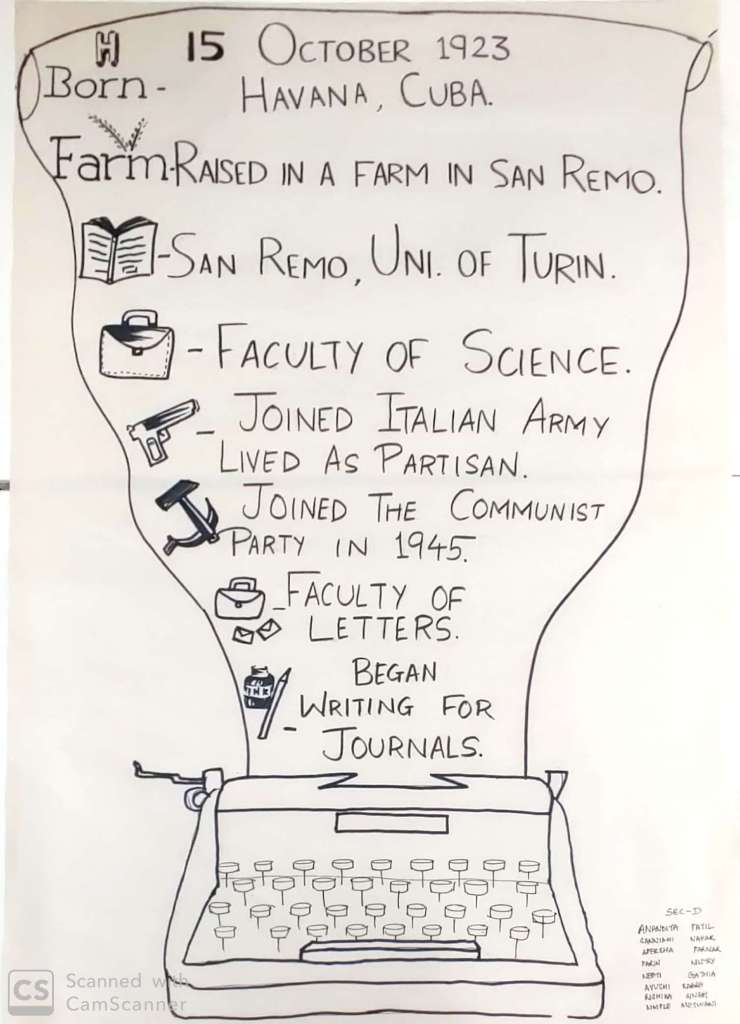 H 15 OCTOBER 1923
Born - HAVANA, CUBA.
Farm-RAISED IN A FARM IN SAN REMO.
-SAN REMO, UNI. OF TURIN.
- FACULTY OF SCIENCE.
- JOINED ITALIAN ARMY
LIVED AS PARTISAN.
JOINED THE COMMUNIST
PARTY IN 1945.
-FACULTY OF
LETTERS.
INK
BEGAN
- WRITING FOR
JOURNALS.
SEC-D
ANANDITA PATIL
NAYAK
APEKSHA
MISTRY
AYUSHI
CS Scanned with
CamScanner